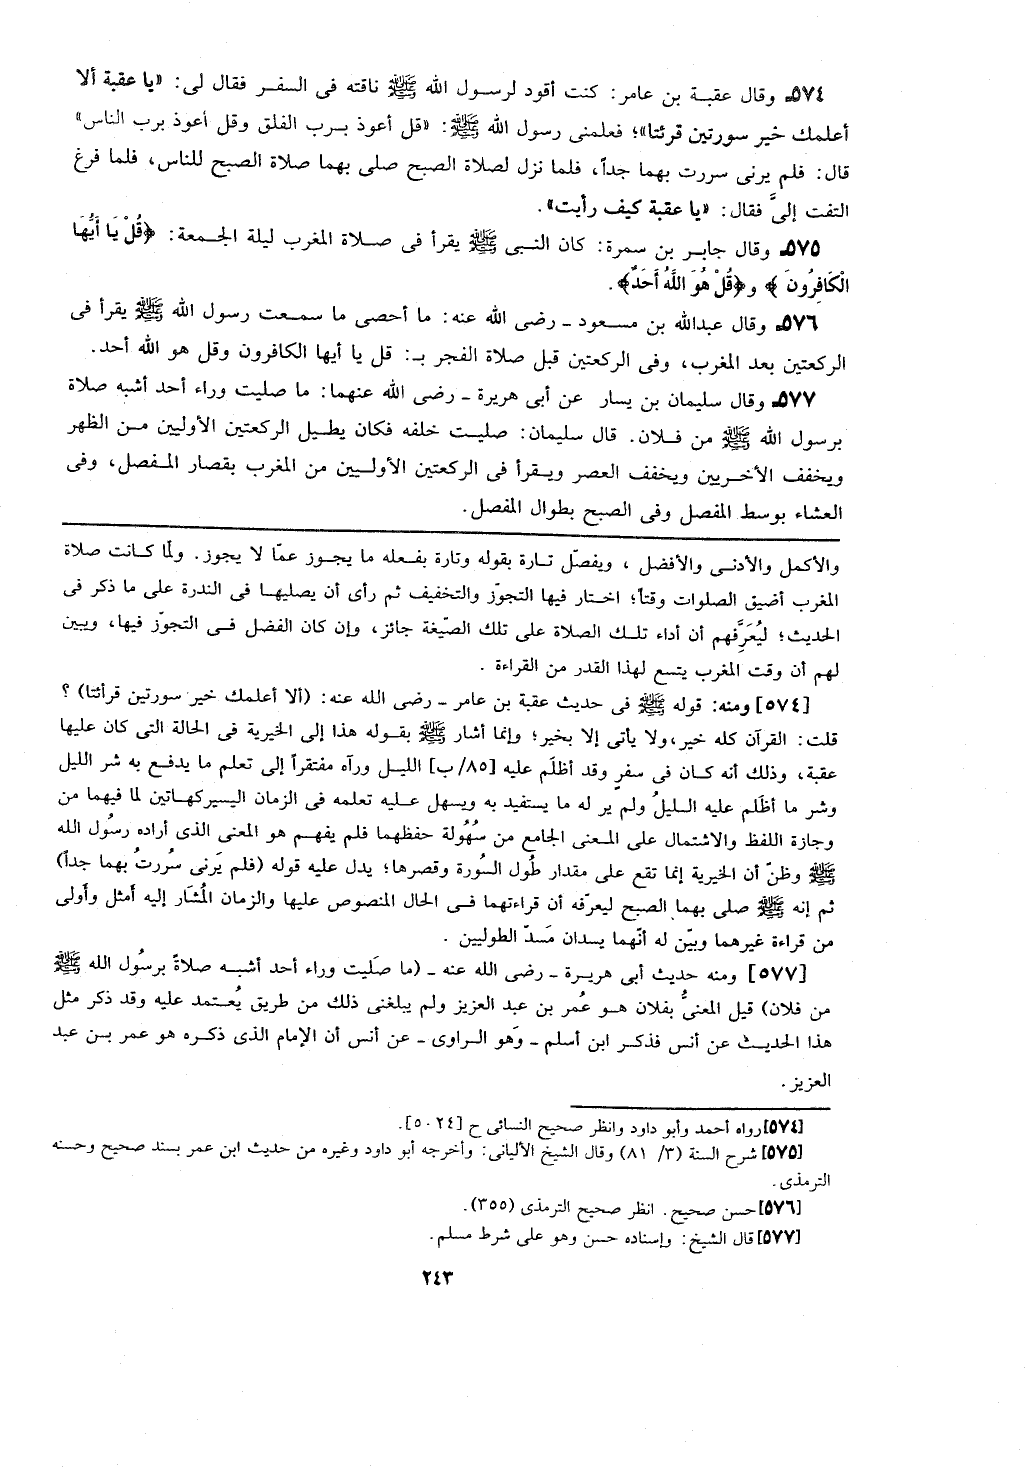 ٥٧٤ـ وقال عقبة بن عامر: كنت أقود لرسول الله ﷺ ناقته فى السفر فقال لى: «يا عقبة ألا
أعلمك خير سورتين قرئتا»؛ فعلمنى رسول الله ﷺ: «قل أعوذ برب الفلق وقل أعوذ برب الناس»
قال: فلم يرنى سررت بهما جداً، فلما نزل لصلاة الصبح صلى بهما صلاة الصبح للناس، فلما فرغ
التفت إلىَّ فقال: «يا عقبة كيف رأيت».
٥٧٥ـ وقال جابر بن سمرة: كان النبى ﷺ يقرأ فى صلاة المغرب ليلة الجمعة: ﴿قُلْ يَا أَيُّهَا
الْكَافِرُونَ﴾ و﴿قُلْ هُوَ اللَّهُ أَحَدٌ﴾.
٥٧٦ـ وقال عبدالله بن مسعود ـ رضى الله عنه: ما أحصى ما سمعت رسول الله ﷺ يقرأ فى
الركعتين بعد المغرب، وفى الركعتين قبل صلاة الفجر بـ: قل يا أيها الكافرون وقل هو الله أحد.
٥٧٧ـ وقال سليمان بن يسار عن أبى هريرة ـ رضى الله عنهما: ما صليت وراء أحد أشبه صلاة
برسول الله ﷺ من فلان. قال سليمان: صليت خلفه فكان يطيل الركعتين الأوليين من الظهر
ويخفف الأخريين ويخفف العصر ويقرأ فى الركعتين الأوليين من المغرب بقصار المفصل، وفى
العشاء بوسط المفصل وفى الصبح بطوال المفصل.
والأكمل والأدنى والأفضل ، ويفصّل تارة بقوله وتارة بفعله ما يجوز عمّا لا يجوز. ولمّا كانت صلاة
المغرب أضيق الصلوات وقتاً؛ اختار فيها التجوّز والتخفيف ثم رأى أن يصليها فى الندرة على ما ذكر فى
الحديث؛ ليُعَرِّفهم أن أداء تلك الصلاة على تلك الصّيغة جائز، وإن كان الفضل فى التجوّز فيها، ويبين
لهم أن وقت المغرب يتسع لهذا القدر من القراءة .
[٥٧٤] ومنه: قوله ﷺ فى حديث عقبة بن عامر ـ رضى الله عنه: (ألا أعلمك خير سورتين قرأتنا) ؟
قلت: القرآن كله خير،ولا يأتى إلا بخير؛ وإنما أشار ﷺ بقوله هذا إلى الخيرية فى الحالة التى كان عليها
عقبة، وذلك أنه كان فى سفرٍ وقد أظلَم عليه [٨٥/ب] الليل ورآه مفتقراً إلى تعلم ما يدفع به شر الليل
وشر ما أظَلم عليه الليلُ ولم ير له ما يستفيد به ويسهل عليه تعلمه فى الزمان اليسيركهاتين لما فيهما من
وجازة اللفظ والاشتمال على المعنى الجامع من سُهُولة حفظهما فلم يفهم هو المعنى الذى أراده رسُول الله
ﷺ وظنّ أن الخيرية إنما تقع على مقدار طُول السُورة وقصرها؛ يدل عليه قوله (فلم يَرنى سُررتُ بهما جداً)
ثم إنه ﷺ صلى بهما الصبح ليعرّفه أن قراءتهما فى الحال المنصوص عليها والزمان المُشَار إليه أمثل وأولى
من قراءة غيرهما وبيّن له أنّهما يسدان مَسدّ الطوليين .
[٥٧٧] ومنه حديث أبى هريرة ـ رضى الله عنه ـ (ما صَليت وراء أحد أشبه صلاةً برسُول الله ﷺ
من فلان) قيل المعنىُّ بفلان هو عُمر بن عبد العزيز ولم يبلغنى ذلك من طريق يُعتمد عليه وقد ذكر مثل
هذا الحديث عن أنس فذكر ابن أسلم ـ وهَو الراوى ـ عن أنس أن الإمام الذى ذكره هو عمر بن عبد
العزيز.
[٥٧٤]رواه أحمد وأبو داود وانظر صحيح النسائى ح [٥٠٢٤].
[٥٧٥]شرح السنة (٣/ ٨١) وقال الشيخ الألبانى: وأخرجه أبو داود وغيره من حديث ابن عمر بسند صحيح وحسنه
الترمذى.
[٥٧٦]حسن صحيح. انظر صحيح الترمذى (٣٥٥).
[٥٧٧]قال الشيخ: وإسناده حسن وهو على شرط مسلم.
٢٤٣